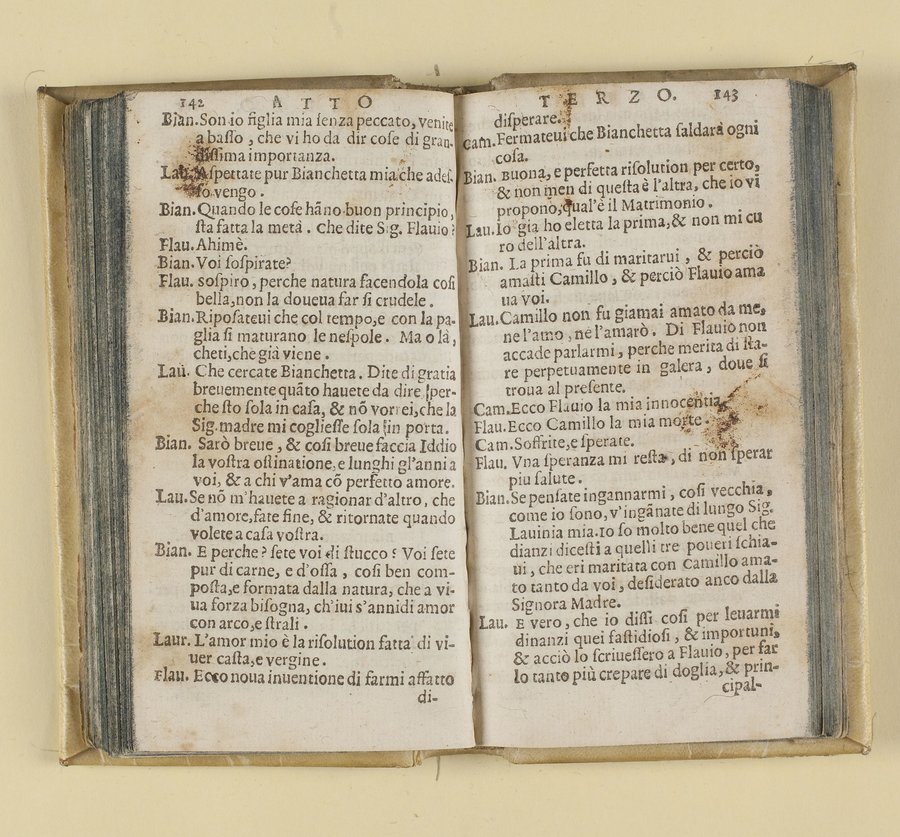 142 ATTO
Bian. Son io figlia mia ſenza peccato, venite
a baſſo, che vi ho da dir coſe di gran-
diſſima importanza.
Lau. Aſpettate pur Bianchetta mia che adeſ-
ſo vengo.
Bian. Quando le coſe hãno buon principio,
ſta fatta la metà. Che dite Sig. Flauio?
Flau. Ahimè.
Bian. Voi ſoſpirate?
Flau. soſpiro, perche natura facendola coſi
bella, non la doueua far ſi crudele.
Bian. Ripoſateui che col tempo, e con la pa-
glia ſi maturano le neſpole. Ma o là,
cheti, che già viene.
Lau. Che cercate Bianchetta. Dite di gratia
breuemente quãto hauete da dire, per-
che ſto ſola in caſa, & nõ vorrei, che la
Sig. madre mi coglieſſe ſola in porta.
Bian. Sarò breue, & coſi breue faccia Iddio
la voſtra oſtinatione, e lunghi gl'anni a
voi, & a chi v'ama cõ perfetto amore.
Lau. Se nõ m'hauete a ragionar d'altro, che
d'amore, fate fine, & ritornate quando
volete a caſa voſtra.
Bian. E perche? ſete voi di ſtucco? Voi ſete
pur di carne, e d'oſſa, coſi ben com-
poſta, e formata dalla natura, che a vi-
ua forza biſogna, ch'iui s'annidi amor
con arco, e ſtrali.
Laur. L'amor mio è la riſolution fatta di vi-
uer caſta, e vergine.
Flau. Ecco noua inuentione di farmi affatto
di-
TERZO. 143
diſperare.
Cam. Fermateui che Bianchetta ſaldarà ogni
coſa.
Bian. Buona, e perfetta riſolution per certo,
& non men di queſta è l'altra, che io vi
propono, qual'è il Matrimonio.
Lau. Io gia ho eletta la prima, & non mi cu
ro dell'altra.
Bian. La prima fu di maritarui, & perciò
amaſti Camillo, & perciò Flauio ama
ua voi.
Lau. Camillo non fu giamai amato da me,
ne l'amo, ne l'amarò. Di Flauio non
accade parlarmi, perche merita di ſta-
re perpetuamente in galera, doue ſi
troua al preſente.
Cam. Ecco Flauio la mia innocentia.
Flau. Ecco Camillo la mia morte.
Cam. Soffrite, e ſperate.
Flau. Vna ſperanza mi reſta, di non ſperar
piu ſalute.
Bian. Se penſate ingannarmi, coſi vecchia,
come io ſono, v'ingãnate di lungo Sig.
Lauinia mia. Io ſo molto bene quel che
dianzi diceſti a quelli tre poueri ſchia-
ui, che eri maritata con Camillo ama-
to tanto da voi, deſiderato anco dalla
Signora Madre.
Lau. E vero, che io diſſi coſi per leuarmi
dinanzi quei faſtidioſi, & importuni,
& acciò lo ſcriueſſero a Flauio, per far
lo tanto più crepare di doglia, & prin-
cipal-